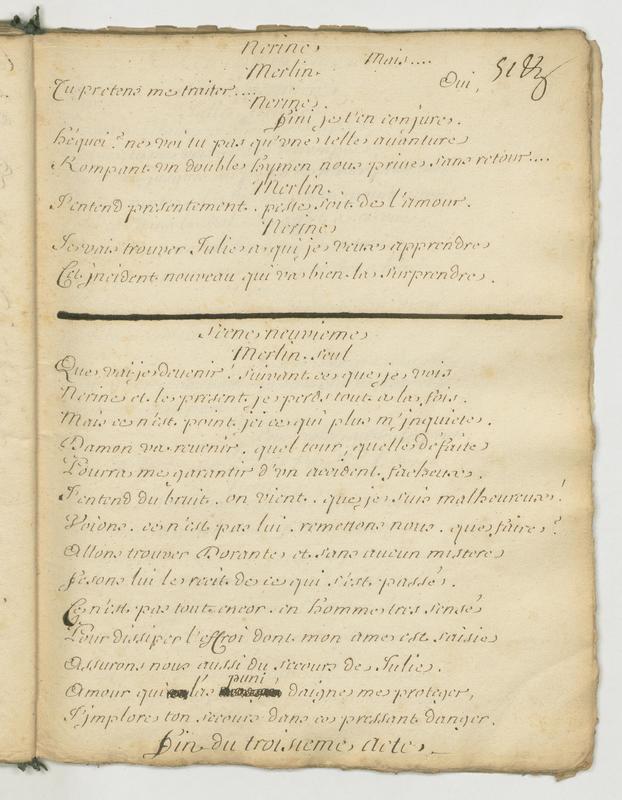 Nerine
Mais....
Merlin.
Oui,
Tu pretens me traiter....
Nerine.
Fini je t'en conjure.
hé quoi? ne voi tu pas qu'vne telle auanture
Rompant vn double hymen nous prive sans retour....
Merlin.
J'entend presentement. peste soit de l'amour.
Nerine
Je vais trouver Julie a qui je veux apprendre
Cet jncident nouveau qui va bien la surprendre.
Scene neuvieme
Merlin seul
Que vai-je devenir! suivant ce que je vois
Nerine et le present je perds tout a la fois.
Mais ce n'est point jci ce qui plus m'jnquiete.
Damon va revenir. quel tour, quelle défaite
Pourra me garantir d'vn accident facheux.
J'entend du bruit. on vient. que je suis malheureux!
Voions. ce n'est pas lui. remettons nous. que faire?
Allons trouver Dorante et sans aucun mistere
Fesons lui le recit de ce qui s'est passé.
Ce n'est pas tout encor. en homme tres sensé
Pour dissiper l'effroi dont mon ame est saisie
Assurons nous aussi du secours de Julie.
puni
Amour qui l'as daigne me proteger,
J'jmplore ton secours dans ce pressant danger.
Fin du troisieme Acte.